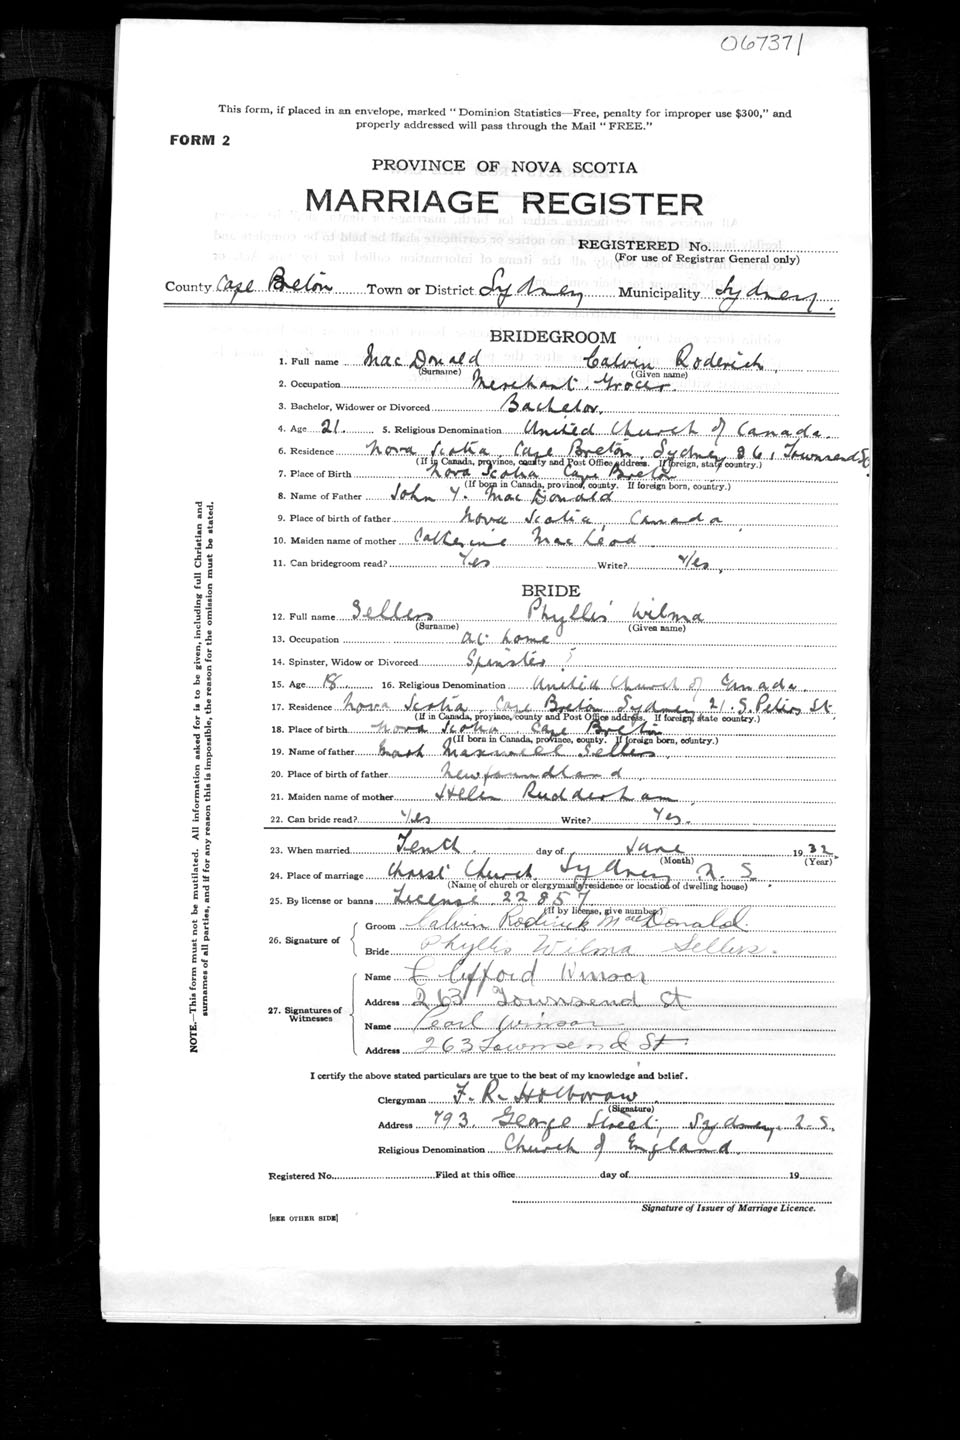 067371
This form, if placed in an envelope, marked "Dominion Statistics—Free, penalty for improper use $300," and
properly addressed will pass through the Mail "FREE."
FORM 2
PROVINCE OF NOVA SCOTIA
MARRIAGE REGISTER
REGISTERED No.
(For use of Registrar General only)
County Cape Breton Town or District Sydney Municipality Sydney.
BRIDEGROOM
1. Full name MacDonald Calvin Roderick,
(Surname) (Given name)
2. Occupation Merchant. Grocer.
3. Bachelor, Widower or Divorced Bachelor.
4. Age 21. 5. Religious Denomination United Church of Canada.
6. Residence Nova Scotia, Cape Breton, Sydney 261 Townsend St
(If in Canada, province, county and Post Office address. If foreign, state country.)
7. Place of Birth Nova Scotia Cape Breton
(If born in Canada, province, county. If foreign born, country.)
8. Name of Father John Y. MacDonald
9. Place of birth of father Nova Scotia, Canada,
10. Maiden name of mother Catherine MacLeod
11. Can bridegroom read? Yes Write? Yes,
BRIDE
12. Full name Sellers Phyllis Wilma
(Surname) (Given name)
13. Occupation at home
14. Spinster, Widow or Divorced Spinster
15. Age 18. 16. Religious Denomination United Church of Canada.
17. Residence Nova Scotia, Cape Breton Sydney 21 S. Peters St.
(If in Canada, province, county and Post Office address. If foreign, state country.)
18. Place of birth Nova Scotia, Cape Breton
(If born in Canada, province, county. If foreign born, country.)
19. Name of father Mark Maxwell Sellers
20. Place of birth of father Newfoundland,
21. Maiden name of mother Helen Rudderham
22. Can bride read? Yes Write? Yes.
23. When married Tenth. day of June 1932.
(Month) (Year)
24. Place of marriage Christ Church, Sydney N. S.
(Name of church or clergyman's residence or location of dwelling house)
25. By license or banns License. 22857
(If by license, give number)
26. Signature of
Groom Calvin Roderick MacDonald.
Bride Phyllis Wilma Sellers.
27. Signatures of Witnesses
Name Clifford Winsor
Address 263 Townsend St
Name Pearl Winsor
Address 263 Townsend St
I certify the above stated particulars are true to the best of my knowledge and belief.
Clergyman F. R. Holborow.
(Signature)
Address 793. George Street, Sydney, N. S.
Religious Denomination Church of England.
Registered No. Filed at this office day of 19
Signature of Issuer of Marriage Licence.
[SEE OTHER SIDE]
NOTE.—This form must not be mutilated. All information asked for is to be given, including full Christian and
surnames of all parties, and if for any reason this is impossible, the reason for the omission must be stated.